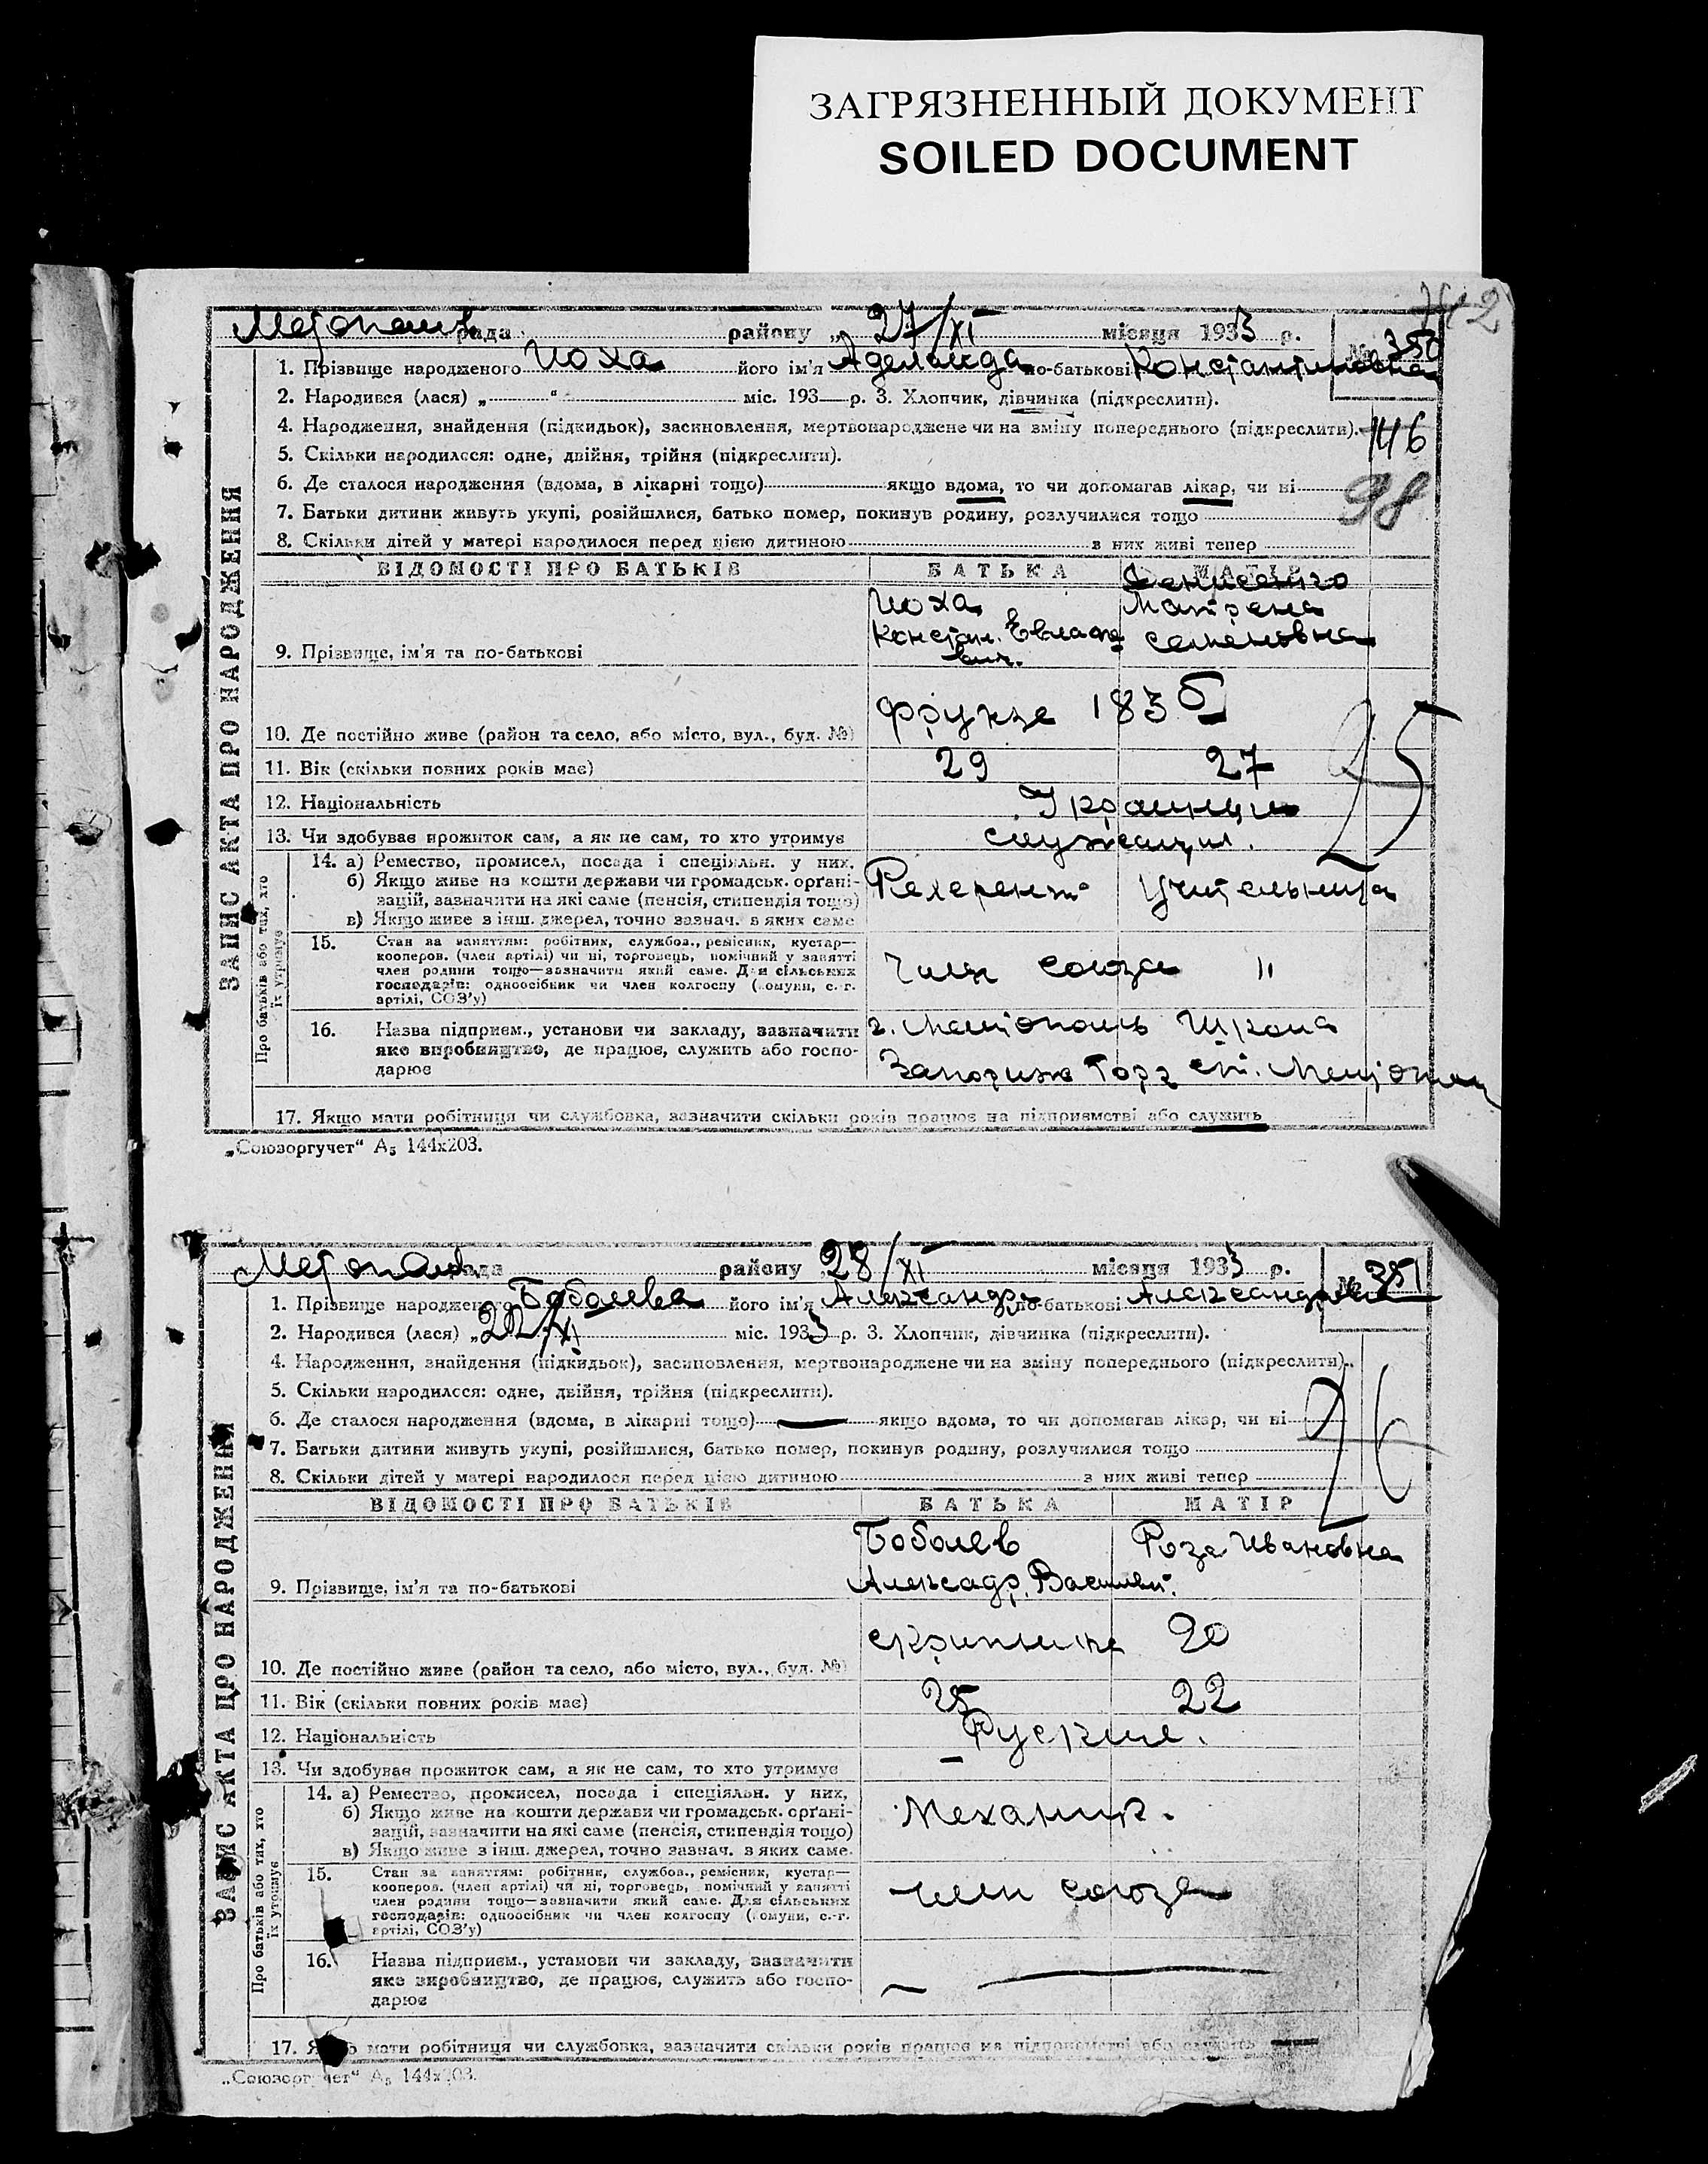 ЗАГРЯЗНЕННЫЙ ДОКУМЕНТ
SOILED DOCUMENT
рада району „ 27/XI місяця 1933 р. № 350
1. Прізвище народженого Иоха його ім'я Аделаида по-батькові Константиновна
2. Народився (лася) „ “ міс. 193 р. 3. Хлопчик, дівчинка (підкреслити).
4. Народження, знайдення (підкидьок), засиновлення, мертвонароджене чи на зміну попереднього (підкреслити).
146
5. Скільки народилося: одне, двійня, трійня (підкреслити).
6. Де сталося народження (вдома, в лікарні тощо) якщо вдома, то чи допомагав лікар, чи ні
98
7. Батьки дитини живуть укупі, розійшлися, батько помер, покинув родину, розлучилися тощо
8. Скільки дітей у матері народилося перед цією дитиною з них живі тепер
ВІДОМОСТІ ПРО БАТЬКІВ БАТЬКА МАТІР
Иоха Матрена
Констан. Семеновна
вич.
9. Прізвище, ім'я та по-батькові
Фрунзе 183
10. Де постійно живе (район та село, або місто, вул., буд. №)
25
11. Вік (скільки повних років має) 29 27
12. Національність Украинцы
13. Чи здобуває прожиток сам, а як не сам, то хто утримує служащие.
14. а) Ремество, промисел, посада і спеціяльн. у них.
б) Якщо живе на кошти держави чи громадськ. орґані-
зацій, зазначити на які саме (пенсія, стипендія тощо)
Референт Учительница
в) Якщо живе з інш. джерел, точно зазнач. в яких саме
15. Стан за заняттям: робітник, службов., ремісник, кустар—
кооперов. (член артілі) чи ні, торговець, помічний у занятті
член родини тощо—зазначити який саме. Для сільських
господарів: одноосібник чи член колгоспу (комуни, с.-г.
артілі, СОЗ'у)
член союза "
16. Назва підприєм., установи чи закладу, зазначити
яке виробництво, де працює, служить або госпо-
дарює
г. Мелитополь Школа
Горг ст.
17. Якщо мати робітниця чи службовка, зазначити скільки років працює на підприємстві або служить
„Союзоргучет“ А₅ 144х203.
ЗАПИС АКТА ПРО НАРОДЖЕННЯ
Про батьків або тих, хто
їх утримує
рада району „ 28/XI місяця 1933 р. № 351
1. Прізвище народженого Бобалева його ім'я Александра по-батькові
2. Народився (лася) „22/XI міс. 1933 р. 3. Хлопчик, дівчинка (підкреслити).
4. Народження, знайдення (підкидьок), засиновлення, мертвонароджене чи на зміну попереднього (підкреслити).
5. Скільки народилося: одне, двійня, трійня (підкреслити).
6. Де сталося народження (вдома, в лікарні тощо) якщо вдома, то чи допомагав лікар, чи ні
26
7. Батьки дитини живуть укупі, розійшлися, батько помер, покинув родину, розлучилися тощо
8. Скільки дітей у матері народилося перед цією дитиною з них живі тепер
ВІДОМОСТІ ПРО БАТЬКІВ БАТЬКА МАТІР
Бобалев Роза Ивановна
9. Прізвище, ім'я та по-батькові Александр. Василев.
20
10. Де постійно живе (район та село, або місто, вул., буд. №)
11. Вік (скільки повних років має) 25 22
12. Національність Руские.
13. Чи здобуває прожиток сам, а як не сам, то хто утримує
14. а) Ремество, промисел, посада і спеціяльн. у них,
б) Якщо живе на кошти держави чи громадськ. орґані-
зацій, зазначити на які саме (пенсія, стипендія тощо)
Механик.
в) Якщо живе з інш. джерел, точно зазнач. в яких саме.
15. Стан за заняттям: робітник, службов., ремісник, кустар—
кооперов. (член артілі) чи ні, торговець, помічний у занятті
член родини тощо—зазначити який саме. Для сільських
господарів: одноосібник чи член колгоспу (комуни, с.-г.
артілі, СОЗ'у)
член союза
16. Назва підприєм., установи чи закладу, зазначити
яке виробництво, де працює, служить або госпо-
дарює
17. Якщо мати робітниця чи службовка, зазначити скільки років працює на підприємстві або служить
„Союзоргучет“ А₅ 144х203.
ЗАПИС АКТА ПРО НАРОДЖЕННЯ
Про батьків або тих, хто
їх утримує